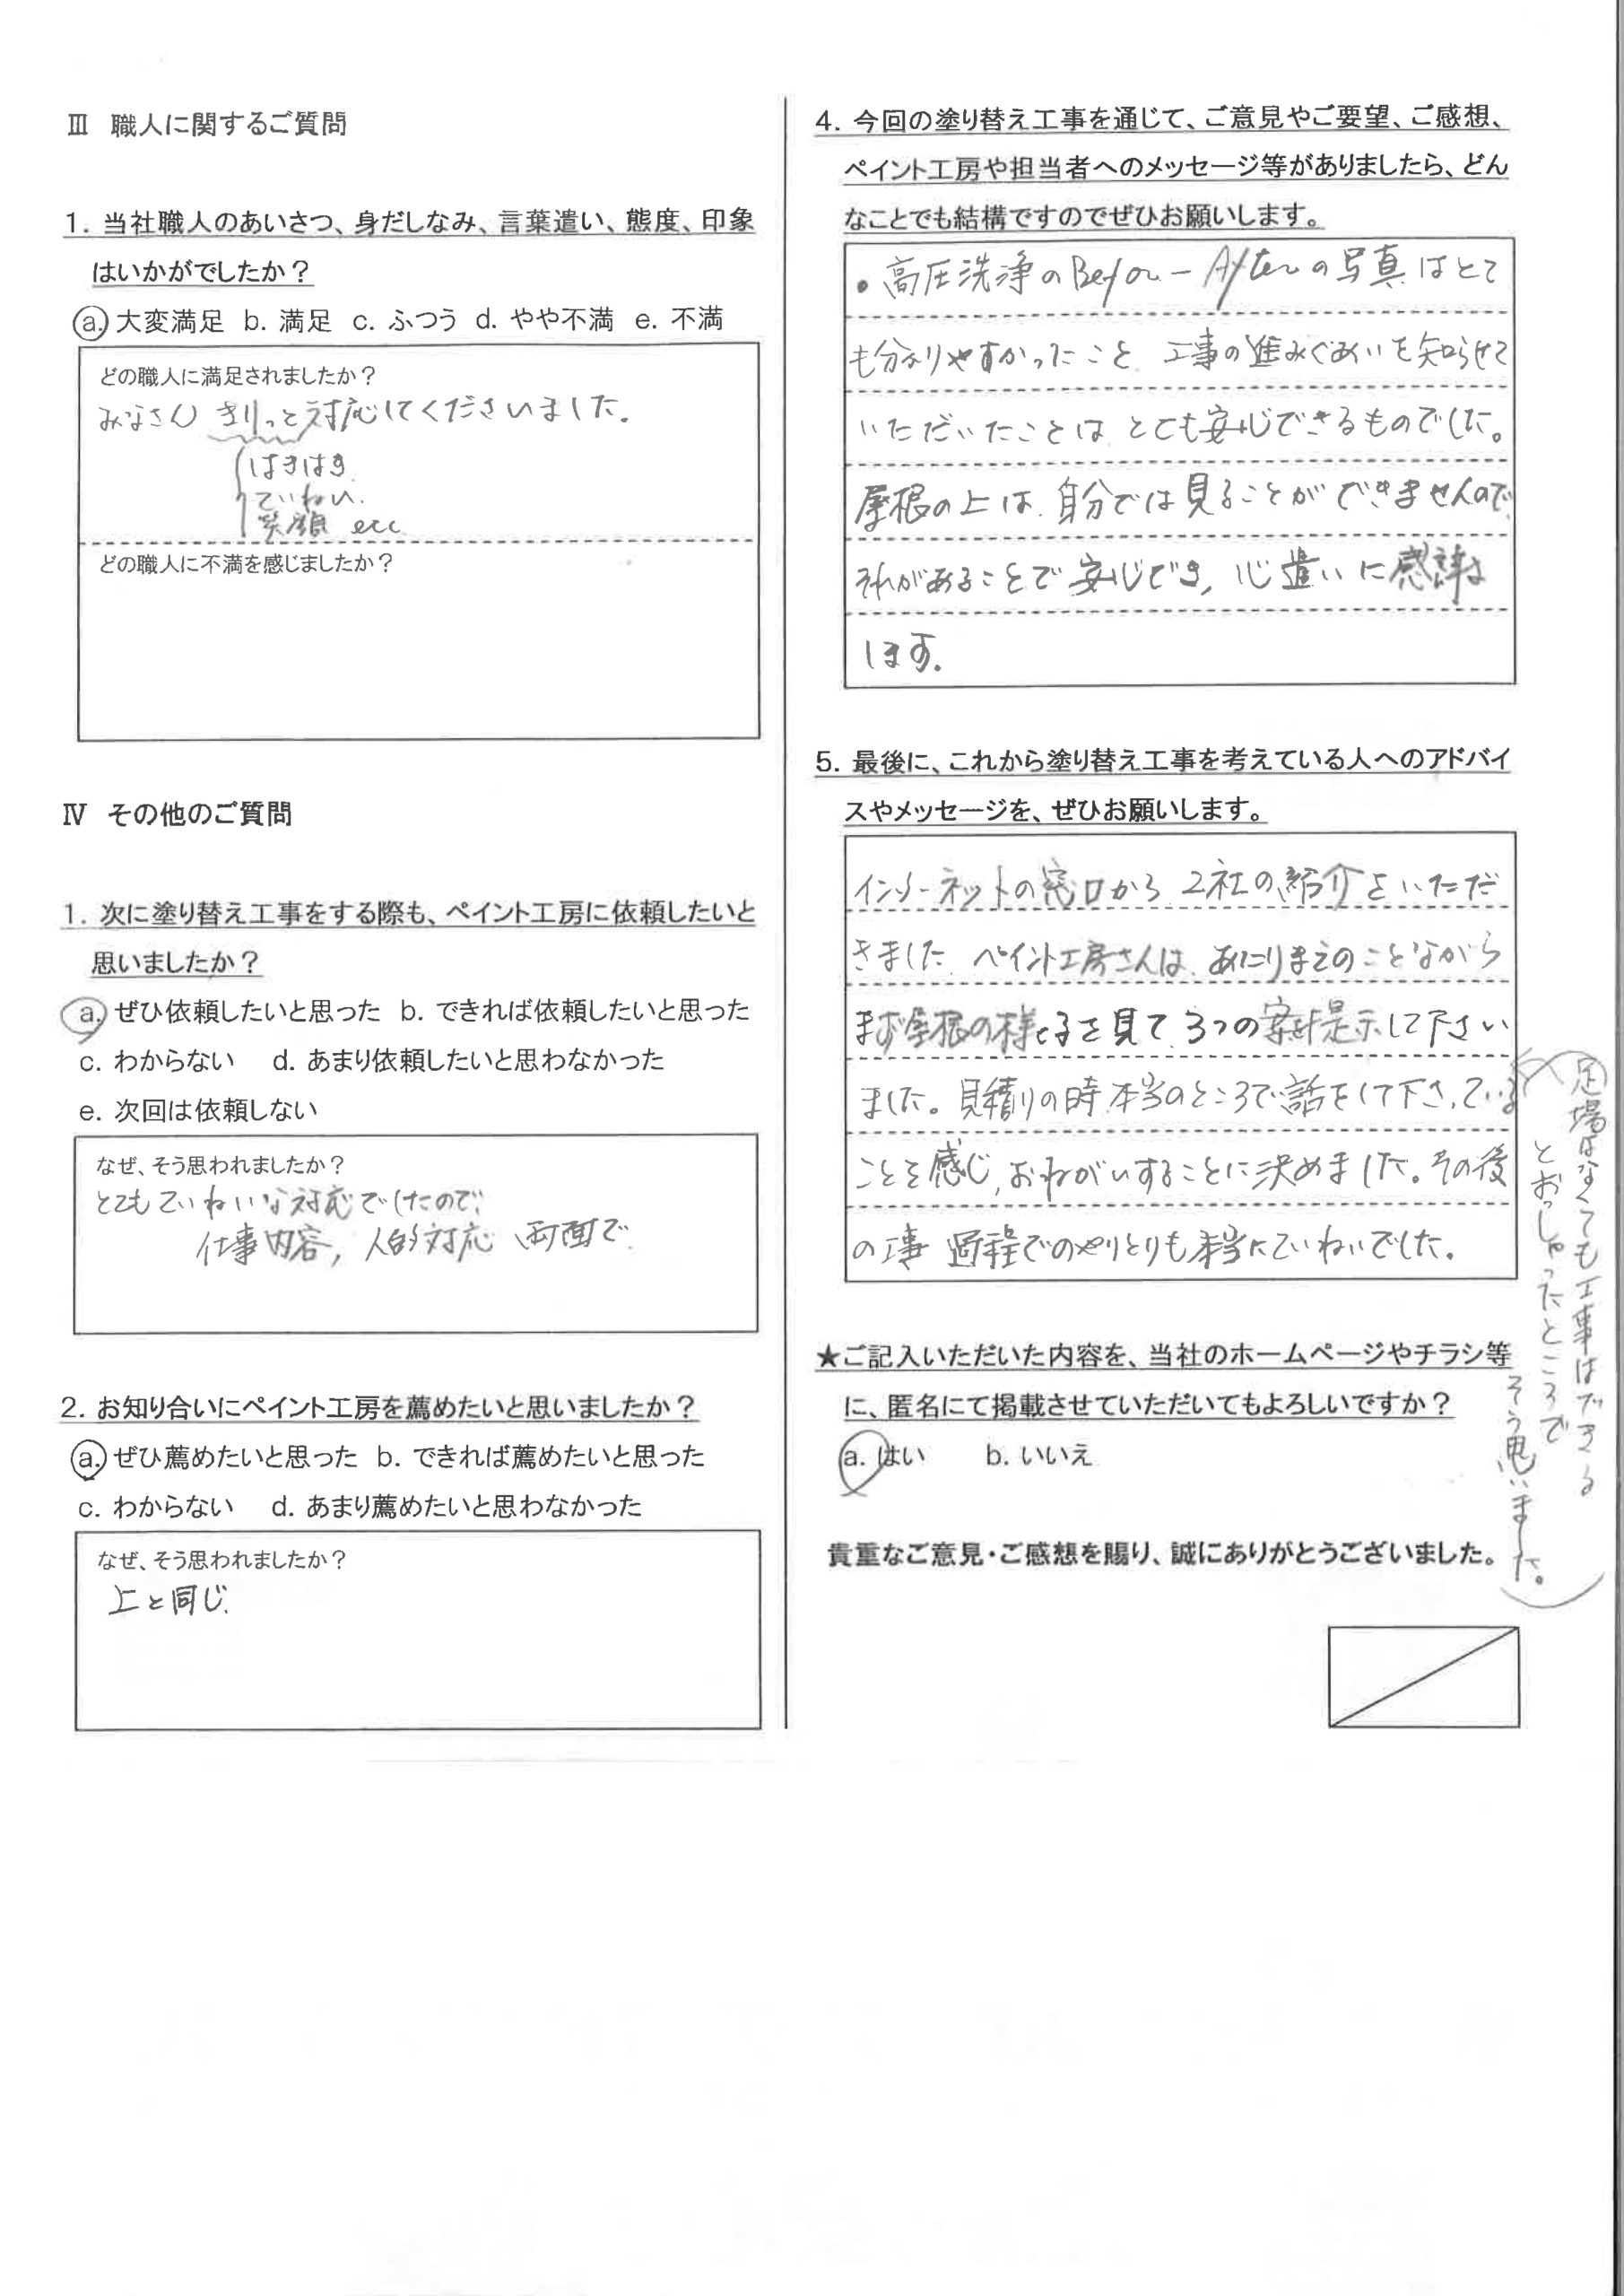 Ⅲ 職人に関するご質問
1. 当社職人のあいさつ、身だしなみ、言葉遣い、態度、印象
はいかがでしたか？
a. 大変満足 b. 満足 c. ふつう d. やや不満 e. 不満
どの職人に満足されましたか？
みなさん きりっと対応してくださいました。
はきはき
ていねい
笑顔 etc
どの職人に不満を感じましたか？
Ⅳ その他のご質問
1. 次に塗り替え工事をする際も、ペイント工房に依頼したいと
思いましたか？
a. ぜひ依頼したいと思った b. できれば依頼したいと思った
c. わからない d. あまり依頼したいと思わなかった
e. 次回は依頼しない
なぜ、そう思われましたか？
とてもていねいな対応でしたので、
仕事内容, 人的対応 両面で.
2. お知り合いにペイント工房を薦めたいと思いましたか？
a. ぜひ薦めたいと思った b. できれば薦めたいと思った
c. わからない d. あまり薦めたいと思わなかった
なぜ、そう思われましたか？
上と同じ.
4. 今回の塗り替え工事を通じて、ご意見やご要望、ご感想、
ペイント工房や担当者へのメッセージ等がありましたら、どん
なことでも結構ですのでぜひお願いします。
・高圧洗浄のBefor－Afterの写真はとて
も分かりやすかったこと 工事の進みぐあいを知らせて
いただいたことは とても安心できるものでした。
屋根の上は 自分では見ることができませんので、
それがあることで安心でき, 心遣いに感謝
します.
5. 最後に、これから塗り替え工事を考えている人へのアドバイ
スやメッセージを、ぜひお願いします。
インターネットの窓口から 2社の紹介をいただ
きました. ペイント工房さんは、あたりまえのことながら
まず屋根の様子を見て 3つの案を提示して下さい
ました。見積りの時 本当のところで話をして下さっている
ことを感じ, おねがいすることに決めました。その後
の工事 過程でのやりとりも本当にていねいでした.
足場はなくても工事はできる
とおっしゃったところで
そう思いました。
★ご記入いただいた内容を、当社のホームページやチラシ等
に、匿名にて掲載させていただいてもよろしいですか？
a. はい b. いいえ
貴重なご意見・ご感想を賜り、誠にありがとうございました。